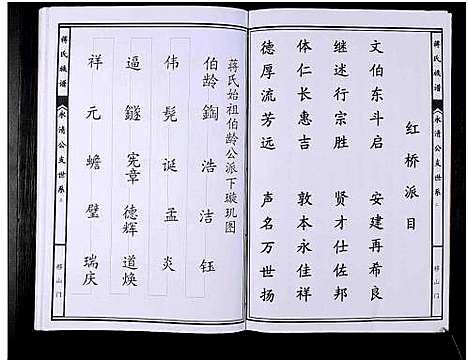 红桥派目
文伯东斗启　安建再希良
继述行宗胜　贤才仕佐邦
体仁长惠吉　敦本永佳祥
德厚流芳远　声名万世扬
蒋氏族谱
永清公支世系
移山门
蒋氏始祖伯龄公派下璇玑图
伯龄　鋾　浩　洁　钰
伟　髡　诞　孟　炎
逼　鐩　宪章　德辉　道焕
祥　元　蟾　璧　瑞庆
蒋氏族谱
永清公支世系
移山门